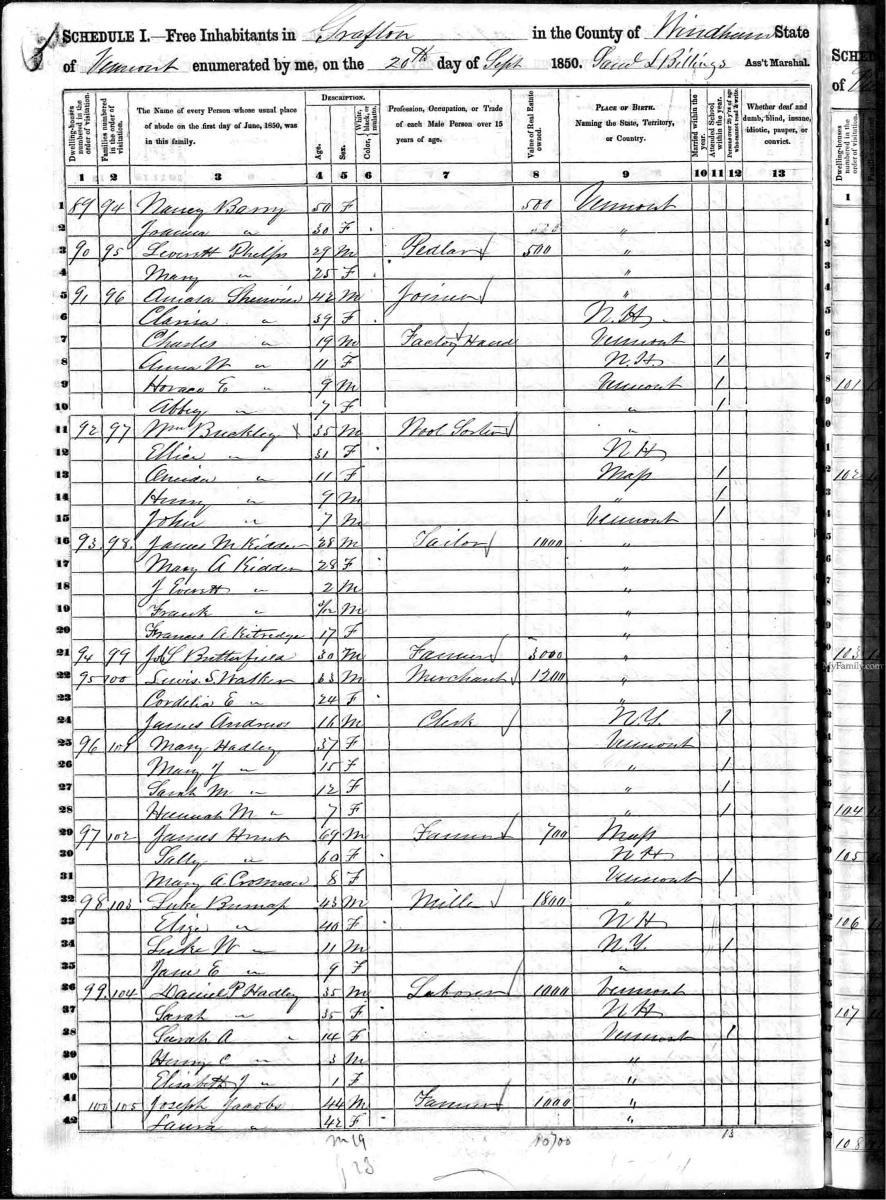 SCHEDULE I.—Free Inhabitants in Grafton in the County of Windham State
of Vermont enumerated by me, on the 20th day of Sept 1850. Saml L Billings Ass't Marshal.
Dwelling-houses numbered in the order of visitation.
Families numbered in the order of visitation.
The Name of every Person whose usual place of abode on the first day of June, 1850, was in this family.
DESCRIPTION.
Age.
Sex.
Color, White, black, or mulatto.
Profession, Occupation, or Trade of each Male Person over 15 years of age.
Value of Real Estate owned.
PLACE OF BIRTH. Naming the State, Territory, or Country.
Married within the year.
Attended School within the year.
Persons over 20 y'rs of age who cannot read & write.
Whether deaf and dumb, blind, insane, idiotic, pauper, or convict.
1 2 3 4 5 6 7 8 9 10 11 12 13
1 89 94 Nancy Barry 50 F 500 Vermont
2 Joanna " 30 F "
3 90 95 Leverett Phelps 29 M Pedlar 500 "
4 Mary " 25 F "
5 91 96 Amasa Sherwin 42 M Joiner "
6 Clarisa " 39 F N.H.
7 Charles " 19 M Factory Hand Vermont
8 Anna W " 11 F N.H. 1
9 Horace E " 9 M Vermont 1
10 Abbey " 7 F " 1
11 92 97 Wm Buckley 35 M Wool Sorter "
12 Ellica " 31 F N H
13 11 F Mass 1
14 Henry " 9 M " 1
15 John " 7 M Vermont 1
16 93 98 James M Kidder 28 M Tailor 1000 "
17 Mary A Kidder 28 F "
18 J Everett " 2 M "
19 Frank " M "
20 Francis A Kitredge 17 F "
21 94 99 J L Butterfield 30 M Farmer 3000 "
22 95 100 Lewis S. Walker 33 M Merchant 1200 "
23 Cordelia E " 24 F "
24 James Andrews 16 M Clerk N.Y. 1
25 96 101 Mary Hadley 37 F Vermont
26 Mary J " 15 F " 1
27 Sarah M " 12 F " 1
28 Hannah M " 7 F " 1
29 97 102 James Hunt 69 M Farmer 700 Mass
30 Sally " 60 F N H
31 Mary A. Crosman 8 F Vermont 1
32 98 103 Luke Burnap 43 M Miller 1800 "
33 Eliza " 40 F N H
34 Luke W " 11 M N.Y. 1
35 Jane E " 9 F "
36 99 104 Daniel P Hadley 35 M Laborer 1000 Vermont
37 Sarah " 35 F N H
38 Sarah A " 14 F Vermont 1
39 Henry C " 3 M "
40 Elisabeth J " 1 F "
41 100 105 Joseph Jacobs 44 M Farmer 1000 "
42 Laura " 42 F "
m 19 10700 13
23
SCHED
of
Dwelling-houses numbered in the order of visitation.
1
101
102
103
MyFamily.com
104
105
106
107
108